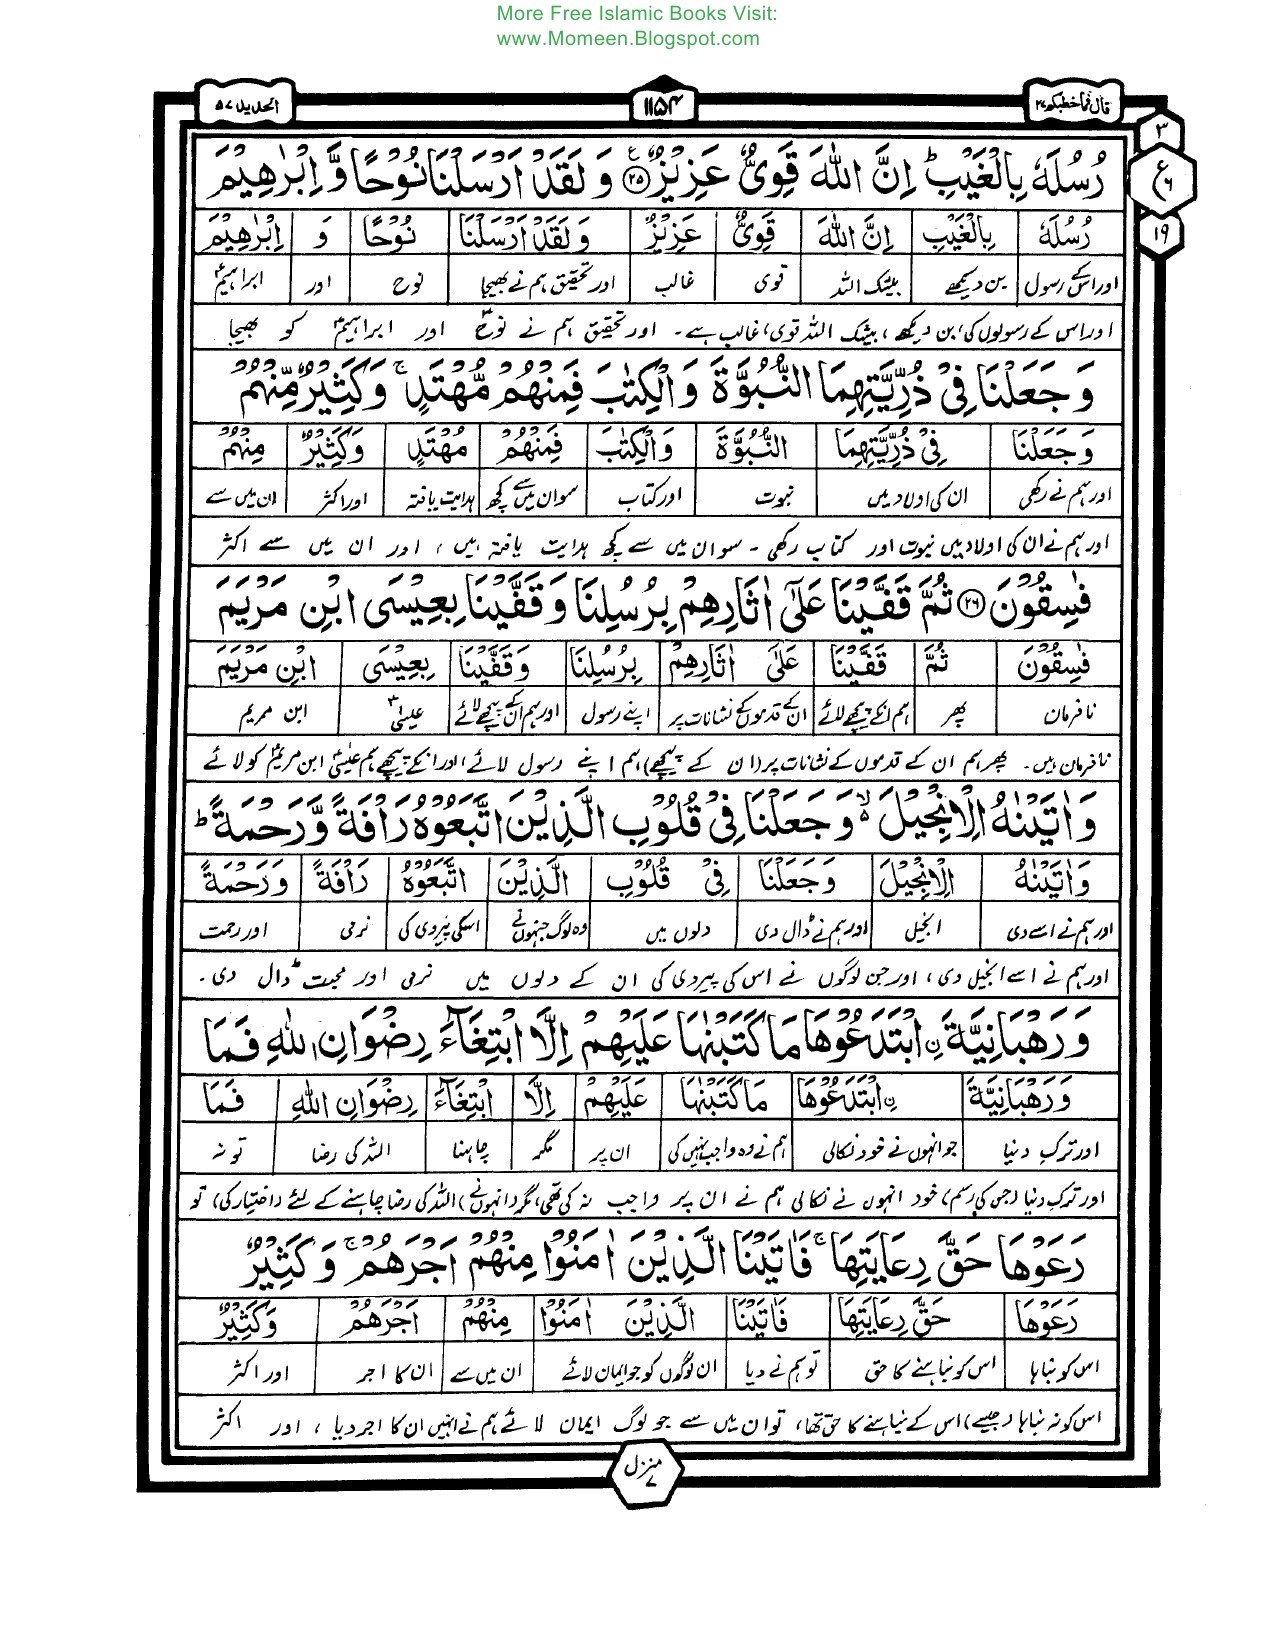 More Free Islamic Books Visit:
www.Momeen.Blogspot.com
قال فما خطبكم ٢٧
١١٥٤
الحدید ٥٧
٣
ع
٦
١٩
رُسُلَهٗ بِالْغَیْبِ ؕ اِنَّ اللّٰهَ قَوِیٌّ عَزِیْزٌ ﴿۲۵﴾ وَ لَقَدْ اَرْسَلْنَا نُوْحًا وَّ اِبْرٰهِیْمَ
رُسُلَهٗ بِالْغَیْبِ اِنَّ اللّٰهَ قَوِیٌّ عَزِیْزٌ وَ لَقَدْ اَرْسَلْنَا نُوْحًا وَ اِبْرٰهِیْمَ
اور اس کے رسول بن دیکھے بیشک اللہ قوی غالب اور تحقیق ہم نے بھیجا نوح اور ابراہیمؑ
اور اس کے رسولوں کی، بن دیکھے، بیشک اللہ قوی، غالب ہے۔ اور تحقیق ہم نے نوحؑ اور ابراہیمؑ کو بھیجا
وَ جَعَلْنَا فِیْ ذُرِّیَّتِهِمَا النُّبُوَّةَ وَ الْكِتٰبَ فَمِنْهُمْ مُّهْتَدٍ ۚ وَ كَثِیْرٌ مِّنْهُمْ
وَ جَعَلْنَا فِیْ ذُرِّیَّتِهِمَا النُّبُوَّةَ وَالْكِتٰبَ فَمِنْهُمْ مُهْتَدٍ وَكَثِیْرٌ مِنْهُمْ
اور ہم نے رکھی ان کی اولاد میں نبوت اور کتاب سو ان میں سے کچھ ہدایت یافتہ اور اکثر ان میں سے
اور ہم نے ان کی اولاد میں نبوت اور کتاب رکھی۔ سو ان میں سے کچھ ہدایت یافتہ ہیں، اور ان میں سے اکثر
فٰسِقُوْنَ ﴿۲۶﴾ ثُمَّ قَفَّیْنَا عَلٰۤی اٰثَارِهِمْ بِرُسُلِنَا وَ قَفَّیْنَا بِعِیْسَی ابْنِ مَرْیَمَ
فٰسِقُوْنَ ثُمَّ قَفَّیْنَا عَلٰی اٰثَارِهِمْ بِرُسُلِنَا وَقَفَّیْنَا بِعِیْسَی ابْنِ مَرْیَمَ
نافرمان پھر ہم انکے پیچھے لائے ان کے قدموں کے نشانات پر اپنے رسول اور ہم ان کے پیچھے لائے عیسیٰؑ ابن مریم
نافرمان ہیں۔ پھر ہم ان کے قدموں کے نشانات پر (ان کے پیچھے) ہم اپنے رسول لائے، اور انکے پیچھے ہم عیسیٰؑ ابن مریمؑ کو لائے
وَ اٰتَیْنٰهُ الْاِنْجِیْلَ ۙ۬ وَ جَعَلْنَا فِیْ قُلُوْبِ الَّذِیْنَ اتَّبَعُوْهُ رَاْفَةً وَّ رَحْمَةً ؕ
وَاٰتَیْنٰهُ الْاِنْجِیْلَ وَ جَعَلْنَا فِیْ قُلُوْبِ الَّذِیْنَ اتَّبَعُوْهُ رَاْفَةً وَرَحْمَةً
اور ہم نے اسے دی انجیل اور ہم نے ڈال دی دلوں میں وہ لوگ جنہوں نے اسکی پیروی کی نرمی اور رحمت
اور ہم نے اسے انجیل دی، اور جن لوگوں نے اس کی پیروی کی ان کے دلوں میں نرمی اور محبت ڈال دی۔
وَ رَهْبَانِیَّةَ ن ابْتَدَعُوْهَا مَا كَتَبْنٰهَا عَلَیْهِمْ اِلَّا ابْتِغَآءَ رِضْوَانِ اللّٰهِ فَمَا
وَرَهْبَانِیَّةَ ن ابْتَدَعُوْهَا مَا كَتَبْنٰهَا عَلَیْهِمْ اِلَّا ابْتِغَآءَ رِضْوَانِ اللّٰهِ فَمَا
اور ترکِ دنیا جو انہوں نے خود نکالی ہم نے وہ واجب نہیں کی ان پر مگر چاہنا اللہ کی رضا تو نہ
اور ترکِ دنیا (جس کی رسم) خود انہوں نے نکالی ہم نے ان پر واجب نہ کی تھی، مگر (انہوں نے) اللہ کی رضا چاہنے کے لئے (اختیار کی) تو
رَعَوْهَا حَقَّ رِعَایَتِهَا ۚ فَاٰتَیْنَا الَّذِیْنَ اٰمَنُوْا مِنْهُمْ اَجْرَهُمْ ۚ وَ كَثِیْرٌ
رَعَوْهَا حَقَّ رِعَایَتِهَا فَاٰتَیْنَا الَّذِیْنَ اٰمَنُوْا مِنْهُمْ اَجْرَهُمْ وَكَثِیْرٌ
اس کو نباہا اس کو نباہنے کا حق تو ہم نے دیا ان لوگوں کو جو ایمان لائے ان میں سے ان کا اجر اور اکثر
اس کو نہ نباہا (جیسے) اس کے نباہنے کا حق تھا، تو ان میں سے جو لوگ ایمان لائے ہم نے انہیں ان کا اجر دیا، اور اکثر
منزل ٧